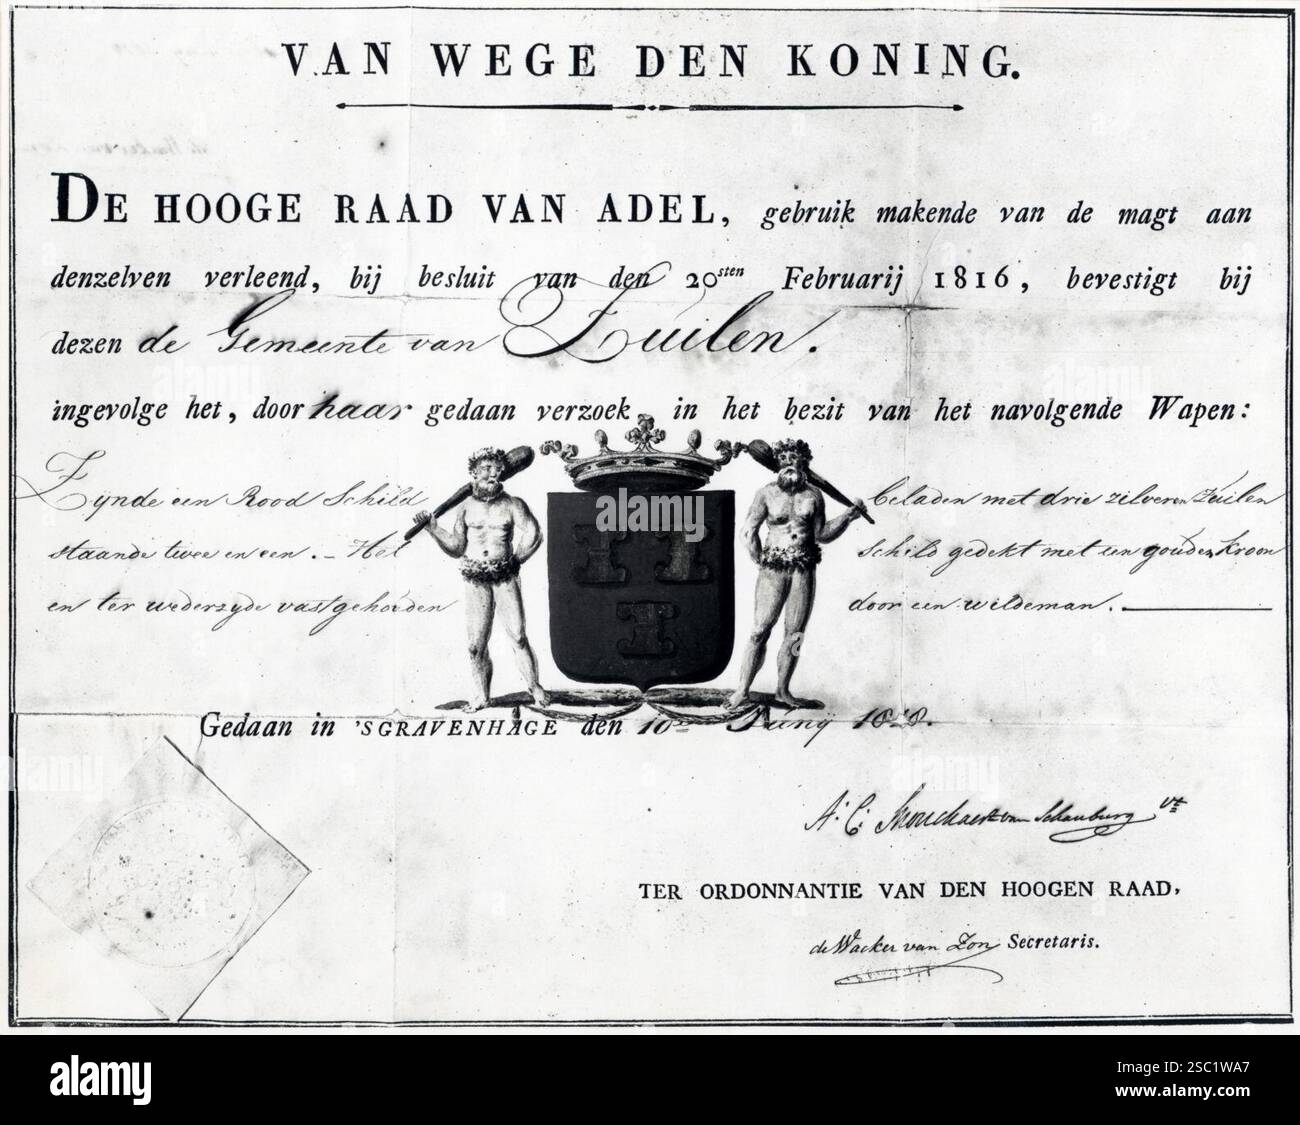 VAN WEGE DEN KONING.
DE HOOGE RAAD VAN ADEL, gebruik makende van de magt aan
denzelven verleend, bij besluit van den 20sten Februarij 1816, bevestigt bij
dezen de Gemeente van Zuilen.
ingevolge het, door haar gedaan verzoek, in het bezit van het navolgende Wapen:
Zynde een Rood Schild beladen met drie zilveren Zuilen
staande twee en een. – Het Schild gedekt met een gouden Kroon
en ter wederzyde vastgehouden door een wildeman.
Gedaan in 'SGRAVENHAGE den 10e Juny 1818.
A: C: Snouckaert van Schauburg vt
TER ORDONNANTIE VAN DEN HOOGEN RAAD,
de Wacker van Zon Secretaris.
alamy
Image ID: 2SC1WA7
www.alamy.com